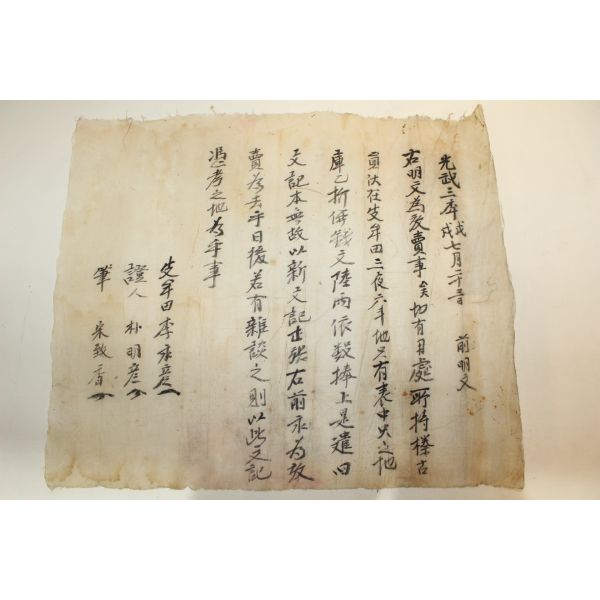 光武三年戊戌七月二十三日 前明文
右明文為放賣事矣切有用處所持樑古
員伏在起年田三夜六斗地只有表中火之地
庫乙折価錢文陸兩依數捧上是遣旧
文記本無故以新文記壹張右前永為放
賣為去乎日後若有雜談之則以此文記
憑考之地為乎事
年田李永彦
證人 朴明彦
筆 宋致香